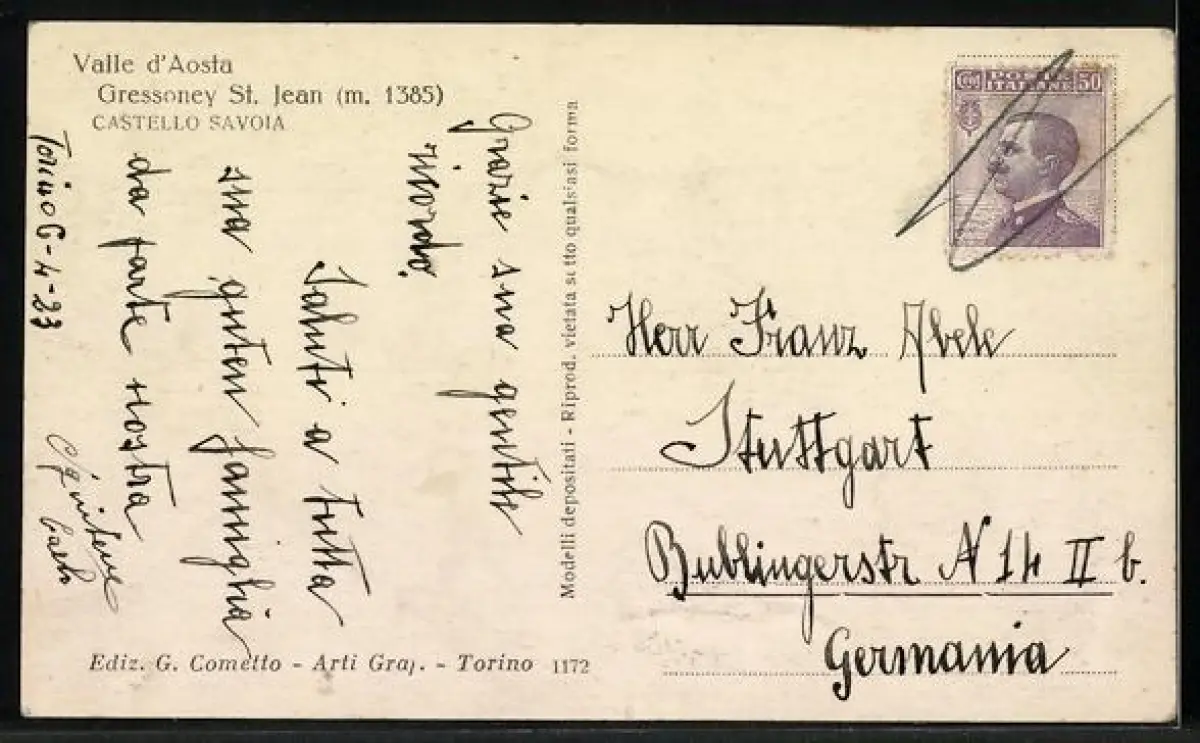 Valle d'Aosta
Gressoney St. Jean (m. 1385)
CASTELLO SAVOIA
Torino 6-4-23
Grazie suo gentile
ricordo.
Saluti a tutta
sua guten famiglia
da parte nostra
Carlo
Modelli depositati - Riprod. vietata sotto qualsiasi forma
Cent POSTE 50
ITALIANE
Herr Franz Abele
Stuttgart
Bublingerstr N 14 II b.
Germania
Ediz. G. Cometto - Arti Graf. - Torino 1172